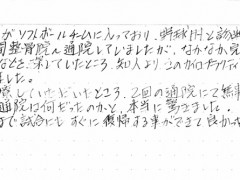 がソフトボールチームに入っており、野球肘と診
間整骨院へ通院していましたが、なかなか完
などを探していたところ、知人より、このカイロプラクティ
ました。
療していただいたところ、2回の通院にて無事
通院は何だったのかと、本当に驚きました。
試合にもすぐに復帰する事ができて良かっ